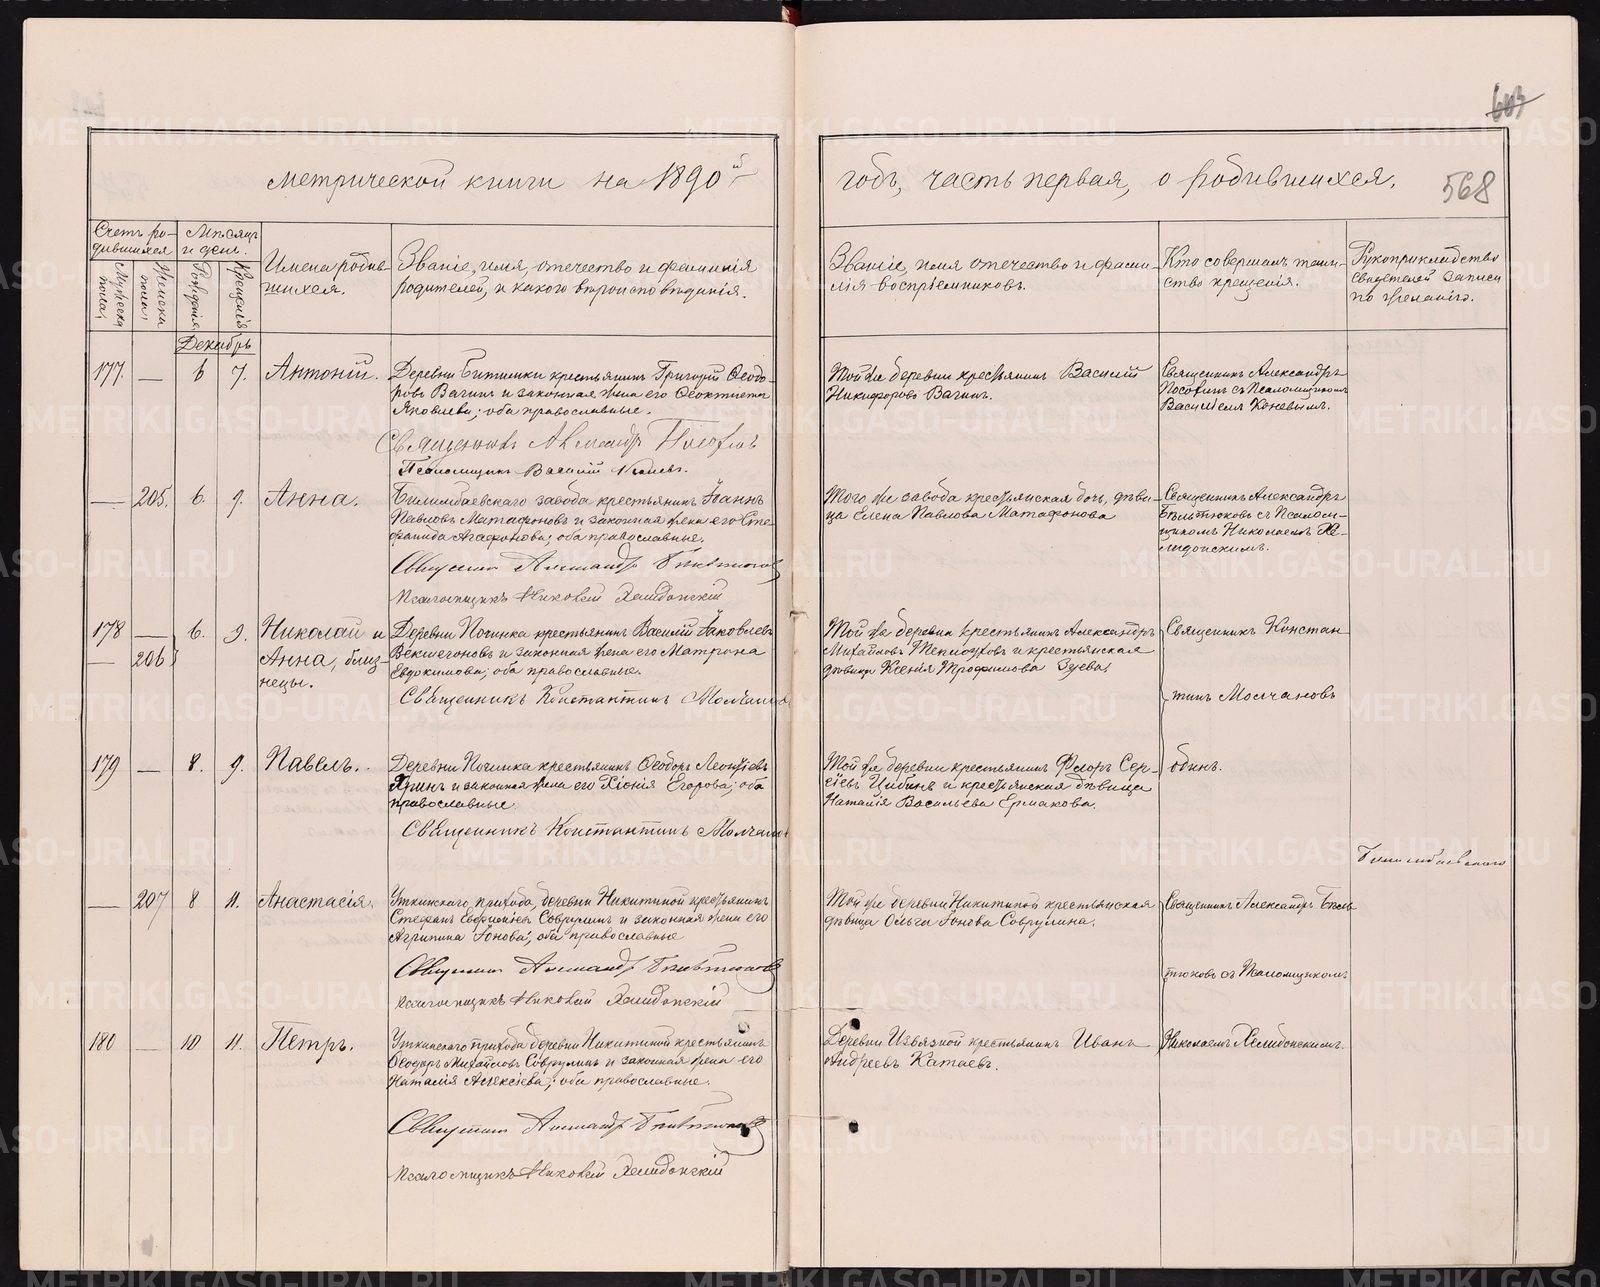 603
метрической книги на 1890 й
годъ, часть первая, о родившихся.
568
Счетъ ро-
дившихся
Мѣсяцъ
и день.
Мужеска
пола,
Женска
пола,
Рожденія
Крещенія
Имена родив-
шихся.
Званіе, имя, отечество и фамилія
родителей, и какого вѣроисповѣданія.
Званіе, имя отечество и фами-
лія воспріемниковъ.
Кто совершалъ таин-
ство крещенія.
Рукоприкладство
свидѣтелей записи
по желанію.
Декабрь
177. — 6 7. Антоній.
Деревни Битимки крестьянинъ Григорій Ѳеодо-
ровъ Вагинъ и законная жена его Ѳеоктиста
Яковлева; оба православные.
Священникъ Александръ
Псаломщикъ Василій Коневъ.
Той же деревни крестьянинъ Василій
Никифоровъ Вагинъ.
Священникъ Александръ
съ Псаломщикомъ
Василіемъ Коневымъ.
— 205. 6. 9. Анна.
Билимбаевскаго завода крестьянинъ Іоаннъ
Павловъ Матафоновъ и законная жена его Сте-
фанида Агафонова; оба православные.
Священникъ Александръ Бѣльтюковъ
Псаломщикъ Николай Хелидонскій
Того же завода крестьянская дочь, дѣви-
ца Елена Павлова Матафонова
Священникъ Александръ
Бѣльтюковъ съ Псалом-
щикомъ Николаемъ Хе-
лидонскимъ.
178 — 6. 9. Николай и
— 206 Анна, близ-
нецы.
Деревни Починка крестьянинъ Василій Яковлевъ
Векшегоновъ и законная жена его Матрона
Евдокимова; оба православные.
Священникъ Константинъ Молчановъ
Той же деревни крестьянинъ Александръ
Михайловъ Теплоуховъ и крестьянская
дѣвица Ксенія Трофимова Гуева,
Священникъ Констан-
тинъ Молчановъ
179 — 8. 9. Павелъ.
Деревни Починка крестьянинъ Ѳеодоръ Леонтіевъ
и законная жена его Хіонія Егорова; оба
православные.
Священникъ Константинъ Молчановъ
Той же деревни крестьянинъ Флоръ Сер-
гіевъ Цибинъ и крестьянская дѣвица
Наталія Васильева Ермакова.
одинъ.
Билимбаевскаго
— 207 8 11. Анастасія.
Уткинскаго прихода, деревни Никитиной крестьянинъ
Стефанъ Совруlинъ и законная жена его
Агрипина Іонова; оба православные
Священникъ Александръ Бѣльтюковъ
Псаломщикъ Николай Хелидонскій
Той же деревни Никитиной крестьянская
дѣвица Ольга Іонова Соврулина.
Священникъ Александръ Бѣль-
тюковъ съ Псаломщикомъ
180 — 10 11. Петръ.
Уткинскаго прихода деревни Никитиной крестьянинъ
Ѳеодоръ Михайловъ Соврулинъ и законная жена его
Наталія Алексіева; оба православные.
Священникъ Александръ Бѣльтюковъ
Псаломщикъ Николай Хелидонскій
Деревни Извязной крестьянинъ Иванъ
Андреевъ Катаевъ.
Николаемъ Хелидонскимъ.
METRIKI.GASO-URAL.RU